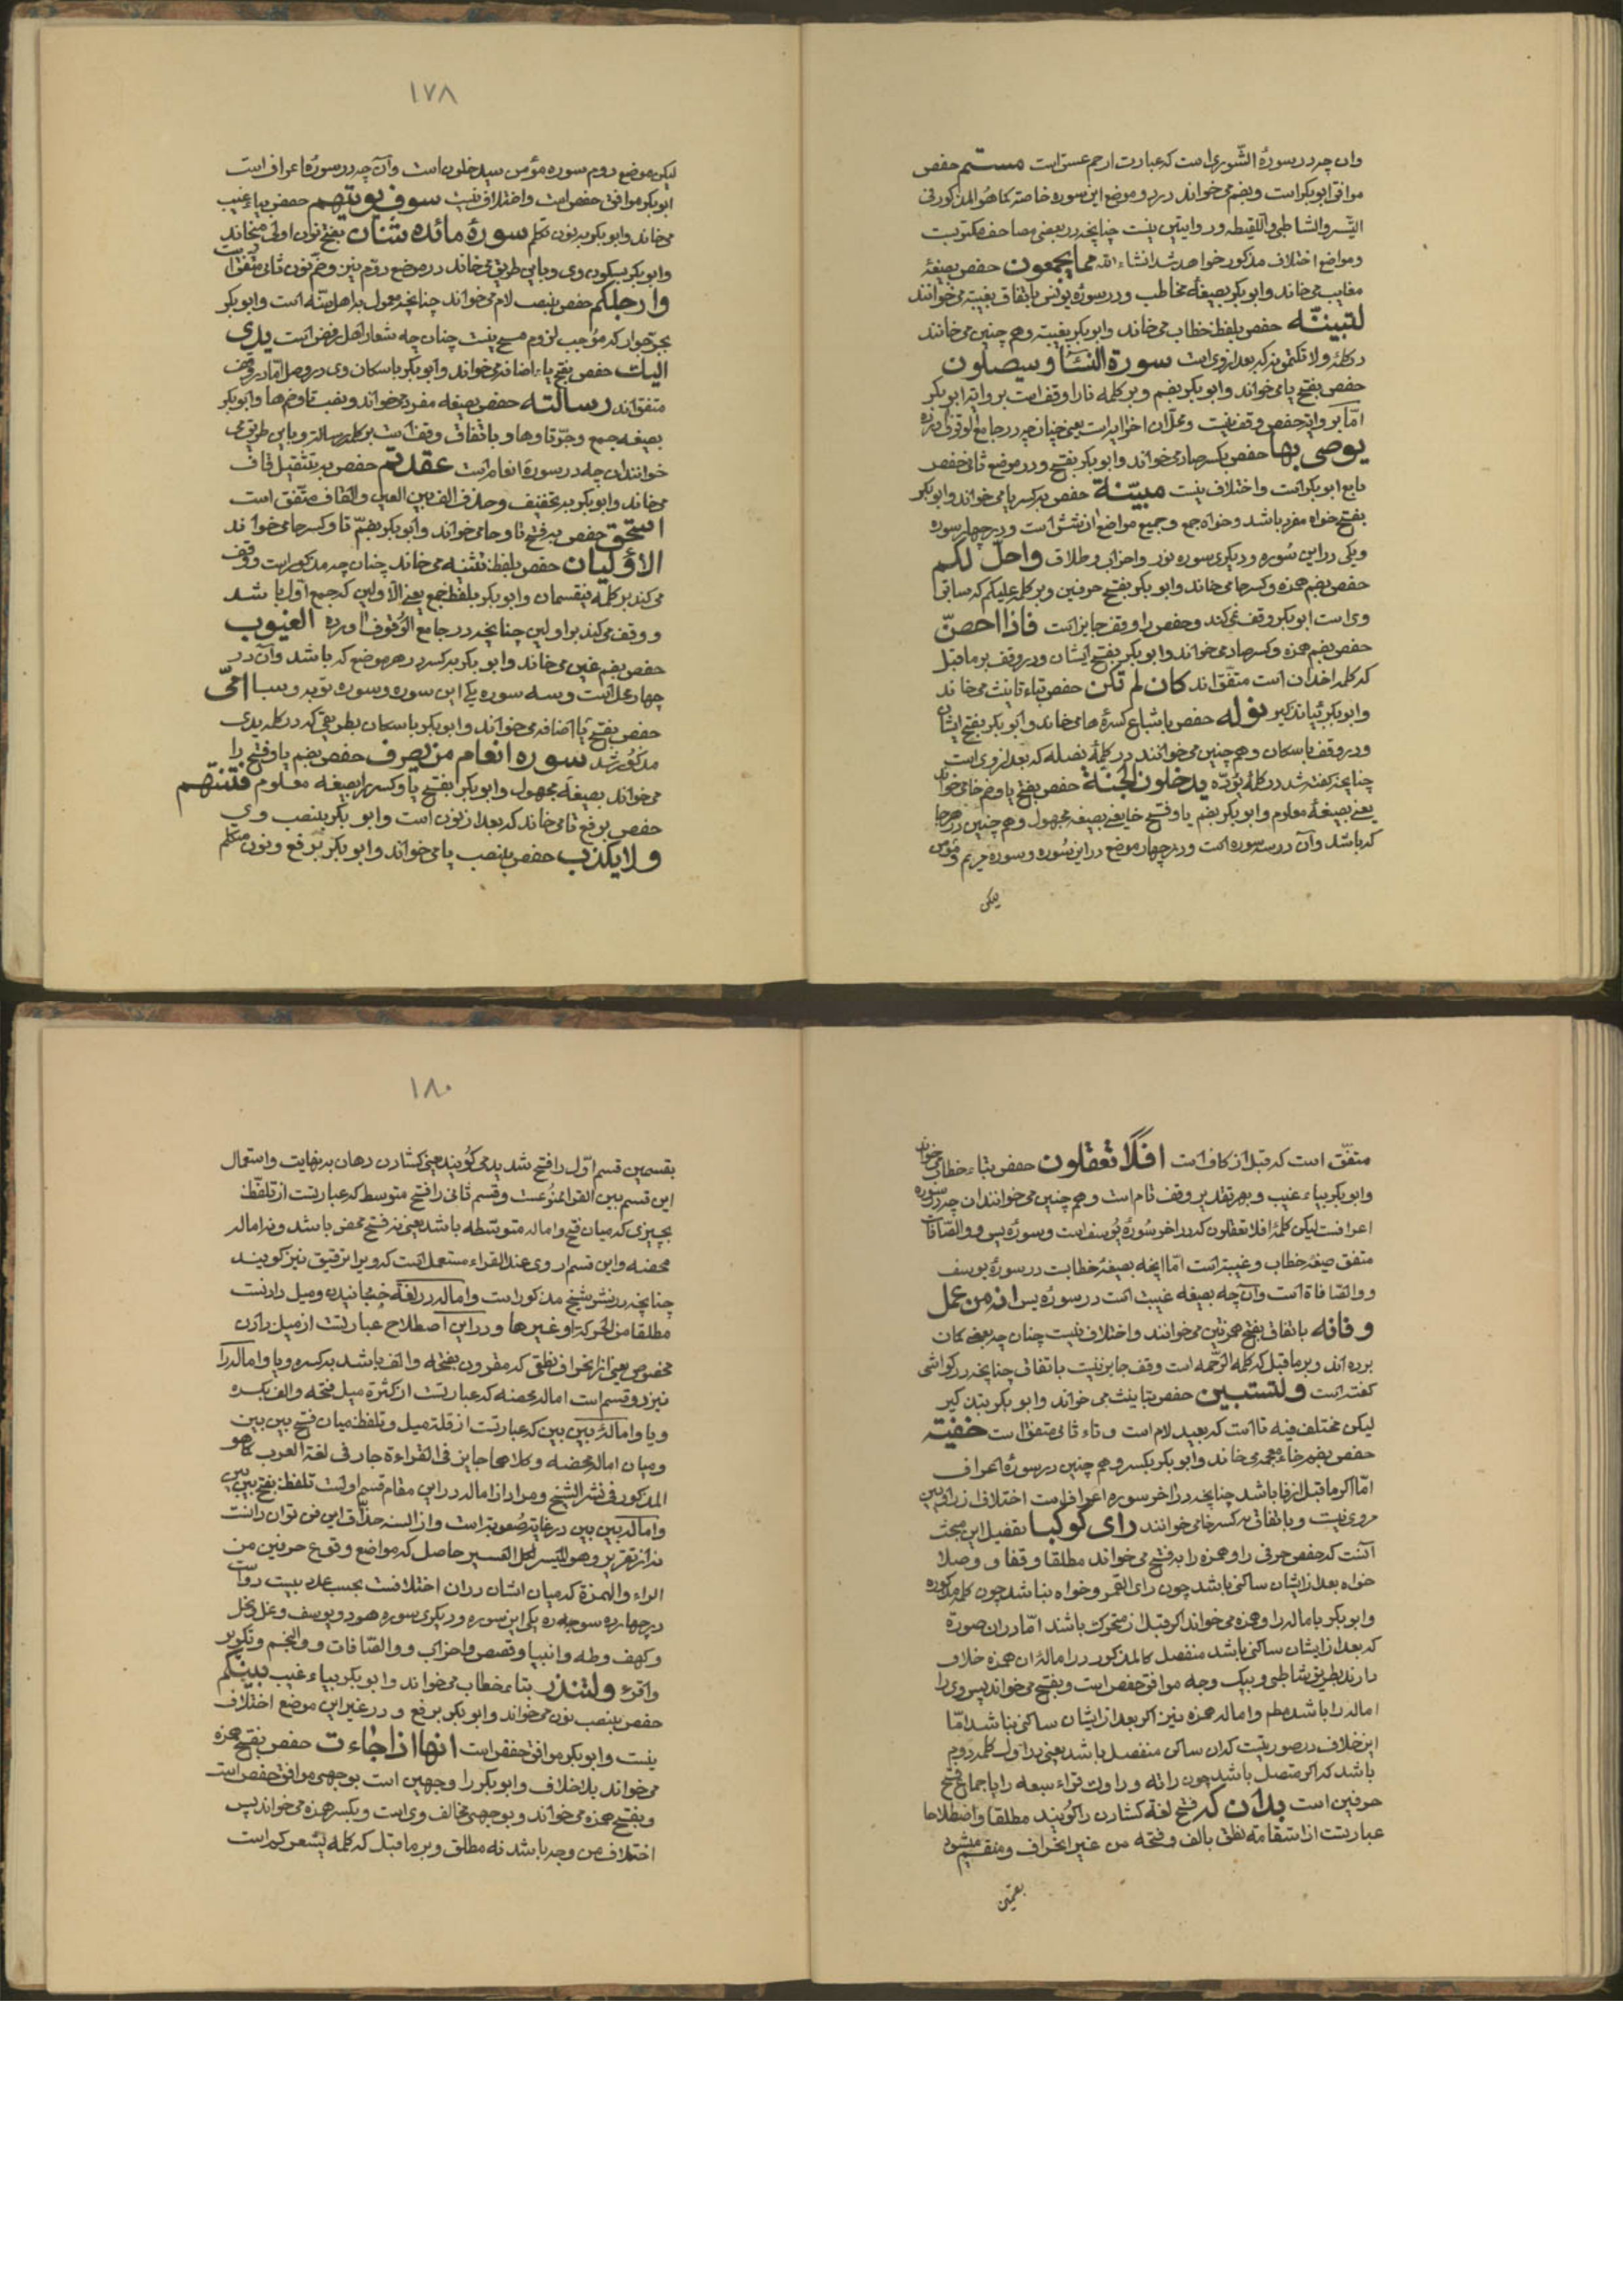 وان چه در سورهٔ الشوری است که عبارت از حم عسق است مستم حفص
موافق ابوبکر است و بضم می خواند در دو موضع این سوره خاصة کما هو المذکور فی
النشر والشاطبی
ومواضع اختلاف مذکور خواهد شد انشاء الله مما یجمعون حفص بصیغهٔ
مغایب می خاند وابوبکر بصیغهٔ مخاطب ودر سورهٔ یونس باتفاق بغیبته می خوانند
لتبیننه حفص بلفظ خطاب می خاند وابوبکر بغیبته وهم چنین می خانند
در کلمهٔ ولا تکتمونه که بعد از وی است سورة النسا وسیصلون
حفص بفتح یا می خواند وابوبکر بضم وبر کلمه نارا وقف است بروایة ابوبکر
اما بروایة حفص وقف نیست
یوصی بها حفص بکسر صاد می خواند وابوبکر بفتح ودر موضع ثانی حفص
تابع ابوبکر است واختلاف نیست مبینة حفص به کسر یا می خواند وابوبکر
بفتح خواه مفرد باشد وخواه جمع وجمیع مواضع ان شش است ودر چهار سوره
ویکی در این سوره ودیگری سوره نور واحزاب وطلاق واحل لکم
حفص بضم همزه وکسر حا می خاند وابوبکر بفتح حرفین وبر کلمه علیکم که سابق
وی است ابوبکر وقف نمی کند وحفص را وقف جایز است فاذا احصن
حفص بضم همزه وکسر صاد می خواند وابوبکر بفتح ایشان ودر وقف بر ماقبل
که کلمه اخدان است متفق اند کان لم تکن حفص بتاء تانیث می خاند
وابوبکر بیاء تذکیر نوله حفص باشباع کسرهٔ ها می خاند وابوبکر بفتح ایشان
ودر وقف باسکان وهم چنین می خوانند در کلمهٔ نصله که بعد از وی است
چنانچه گفته شد در کلمهٔ یؤده یدخلون الجنة حفص بفتح یا وضم خا می خواند
یعنی بصیغهٔ معلوم وابوبکر بضم یا وفتح خا یعنی بصیغه مجهول وهم چنین در هرجا
که باشد وآن در سه سوره است ودر چهار موضع در این سوره وسوره مریم ومؤمن
لیکن
١٧٨
لیکن موضع دوم سوره مؤمن سیدخلون است وآن چه در سورهٔ اعراف است
ابوبکر موافق حفص است واختلاف نیست سوف یؤتیهم حفص بیاء غیب
می خاند وابوبکر بنون تکلم سورهٔ مائده شنان بفتح نون اولی میخاند
وابوبکر بسکون وی وبا این طریق می خاند در موضع دوم نیز وضم نون ثانی متفق است
وارجلکم حفص بنصب لام می خواند چنانچه معمول به اهل سنه است وابوبکر
بجر جوار که موجب لزوم مسح نیست چنان چه شعار اهل رفض است یدی
الیک حفص بفتح یاء اضافه می خواند وابوبکر باسکان وی در وصل اما در وقف
متفق اند رسالته حفص بصیغه مفرد می خواند ونصب تا وضم ها وابوبکر
بصیغه جمع وجر تا وها وباتفاق وقف است بر کلمه رسالته وبا این طریق می
خوانند ان چه در سورهٔ انعام است عقدتم حفص به تثقیل قاف
می خاند وابوبکر به تخفیف وحذف الف بین العین والقاف متفق است
استحق حفص به فتح تا وحا می خواند وابوبکر بضم تا وکسر حا می خواند
الاولیان حفص بلفظ تثنیه می خاند چنان چه مذکور است ووقف
می کند بر کلمه فیقسمان وابوبکر بلفظ جمع یعنی الاولین که جمع اول باشد
ووقف می کند بر اولین چنانچه در جامع الوقوف آورده الغیوب
حفص بضم غین می خاند وابوبکر به کسر در هر موضع که باشد وآن در
چهار محل است وسه سوره یکی این سوره وسوره توبه وسبا امی
حفص بفتح یا اضافه می خواند وابوبکر باسکان بطریقی که در کلمه یدی
مذکور شد سوره انعام من یصرف حفص بضم یا وفتح را
می خواند بصیغهٔ مجهول وابوبکر بفتح یا وکسر را بصیغه معلوم فتنتهم
حفص برفع تا می خاند که بعد از نون است وابوبکر بنصب وی
ولا نکذب حفص بنصب با می خواند وابوبکر برفع ونون متکلم
متفق است که قبل از کاف است افلا تعقلون حفص بتاء خطاب می خواند
وابوبکر بیاء غیب وبهر تقدیر وقف تام است وهم چنین می خوانند ان چه در سوره
اعراف است لیکن کلمهٔ افلا تعقلون که در اخر سورهٔ یوسف است وسورهٔ یس ووالصافات
متفق صیغهٔ خطاب وغیبة است اما انچه بصیغهٔ خطابست در سورهٔ یوسف
ووالصافات است وآن چه بصیغه غیب است در سورهٔ یس انه من عمل
وفانه باتفاق بفتح همزتین می خوانند واختلاف نیست چنان چه بعضی گمان
برده اند وبر ماقبل که کلمه الرحمه است وقف جایز نیست باتفاق چنانچه در کواشی
گفته است ولتستبین حفص بتانیث می خواند وابوبکر بتذکیر
لیکن مختلف فیه تا است که بعد لام است وتاء ثانی متفق است خفیة
حفص بضم خاء معجمه می خاند وابوبکر بکسر وهم چنین در سورهٔ اعراف
اما اگر ماقبل از فا باشد چنانچه در اخر سوره اعراف است اختلاف از راویین
مروی نیست وباتفاق به کسر خا می خوانند رای کوکبا تفصیل این مبحث
آنست که حفص حرفی را وهمزه را به فتح می خواند مطلقا وقفا ووصلا
خواه بعد از ایشان ساکن باشد چون رای القمر وخواه نباشد چون کلمه مذکوره
وابوبکر بامالهٔ را وهمزه می خواند اگر قبل از متحرک باشد اما در ان صورة
که بعد از ایشان ساکن باشد منفصل کالمذکور در امالهٔ ان همزه خلاف
دارند بطریق شاطبی وبیک وجه موافق حفص است وبفتح می خواند پس وی را
اماله را باشد وامالهٔ همزه نیز اگر بعد از ایشان ساکن نباشد اما
این خلاف در صورتیست که ان ساکن منفصل باشد یعنی در اول کلمه دوم
باشد که اگر متصل باشد چون راته وراوک قراء سبعه را باجماع فتح
حرفین است بدان که فتح لغة گشادن را گویند مطلقا واصطلاحا
عبارتست از استقامة نطق بالف وفتحه من غیر انحراف ومنقسم میشود
بقسمین
١٨٠
بقسمین قسم اول را فتح شدید می گویند یعنی گشادن دهان بنهایت واستعمال
این قسم بین القرا ممنوعست وقسم ثانی را فتح متوسط که عبارتست از تلفظ
بچیزی که میان فتح واماله متوسطه باشد یعنی نه فتح محض باشد ونه اماله
محضه واین قسم از وی عند القراء مستعمل است که ویرا ترقیق نیز گویند
چنانچه در نشر شیخ مذکور است واماله در لغة خمانیدن ومیل دادنست
مطلقا من الحرکة او غیرها ودر این اصطلاح عبارتست از میل دادن
مخصوص یعنی از انحراف نطقی که مقرون بفتحه والف باشد به کسره ویا واماله را
نیز دو قسم است اماله محضه که عبارتست از کثرة میل فتحه والف بکسره
ویا وامالهٔ بین بین که عبارتست از قلة میل وتلفظ میان فتح بین بین
ومیان اماله محضه وکلاهما جایز فی القراءة جار فی لغة العرب کما هو
المذکور فی نشر الشیخ ومراد از اماله در این مقام قسم اولست تلفظ بفتح بین بین
واماله بین بین در غایة صعوبة است واز السنه حذاق این فن توان دانست
نه از تقریر وهو المیسر لکل العسیر حاصل که مواضع وقوع حرفین من
الراء والهمزة که میان ایشان دران اختلافست بحسب عدد بیست
در چهارده سوره یکی این سوره ودیگری سوره هود ویوسف ونحل
وکهف وطه وانبیا وقصص واحزاب ووالصافات ووالنجم وتکویر
واقرء ولتنذر بتاء خطاب می خواند وابوبکر بیاء غیب بینکم
حفص بنصب نون می خواند وابوبکر برفع ودر غیر این موضع اختلاف
نیست وابوبکر موافق حفص است انها اذا جاءت حفص بفتح همزه
می خواند بلا خلاف وابوبکر را وجهین است بوجهی موافق حفص است
وبفتح همزه می خواند وبوجهی مخالف وی است وبکسر همزه می خواند پس
اختلاف من وجه باشد نه مطلق وبر ماقبل که کلمه یشعرکم است